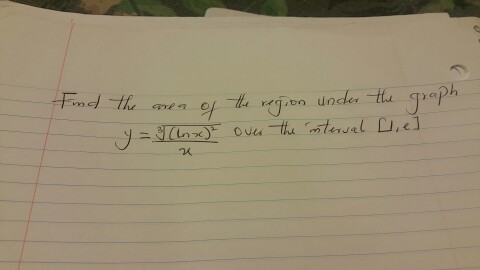 Find the area of the region under the graph
y = ∛(ln x)² / x over the interval [1, e]